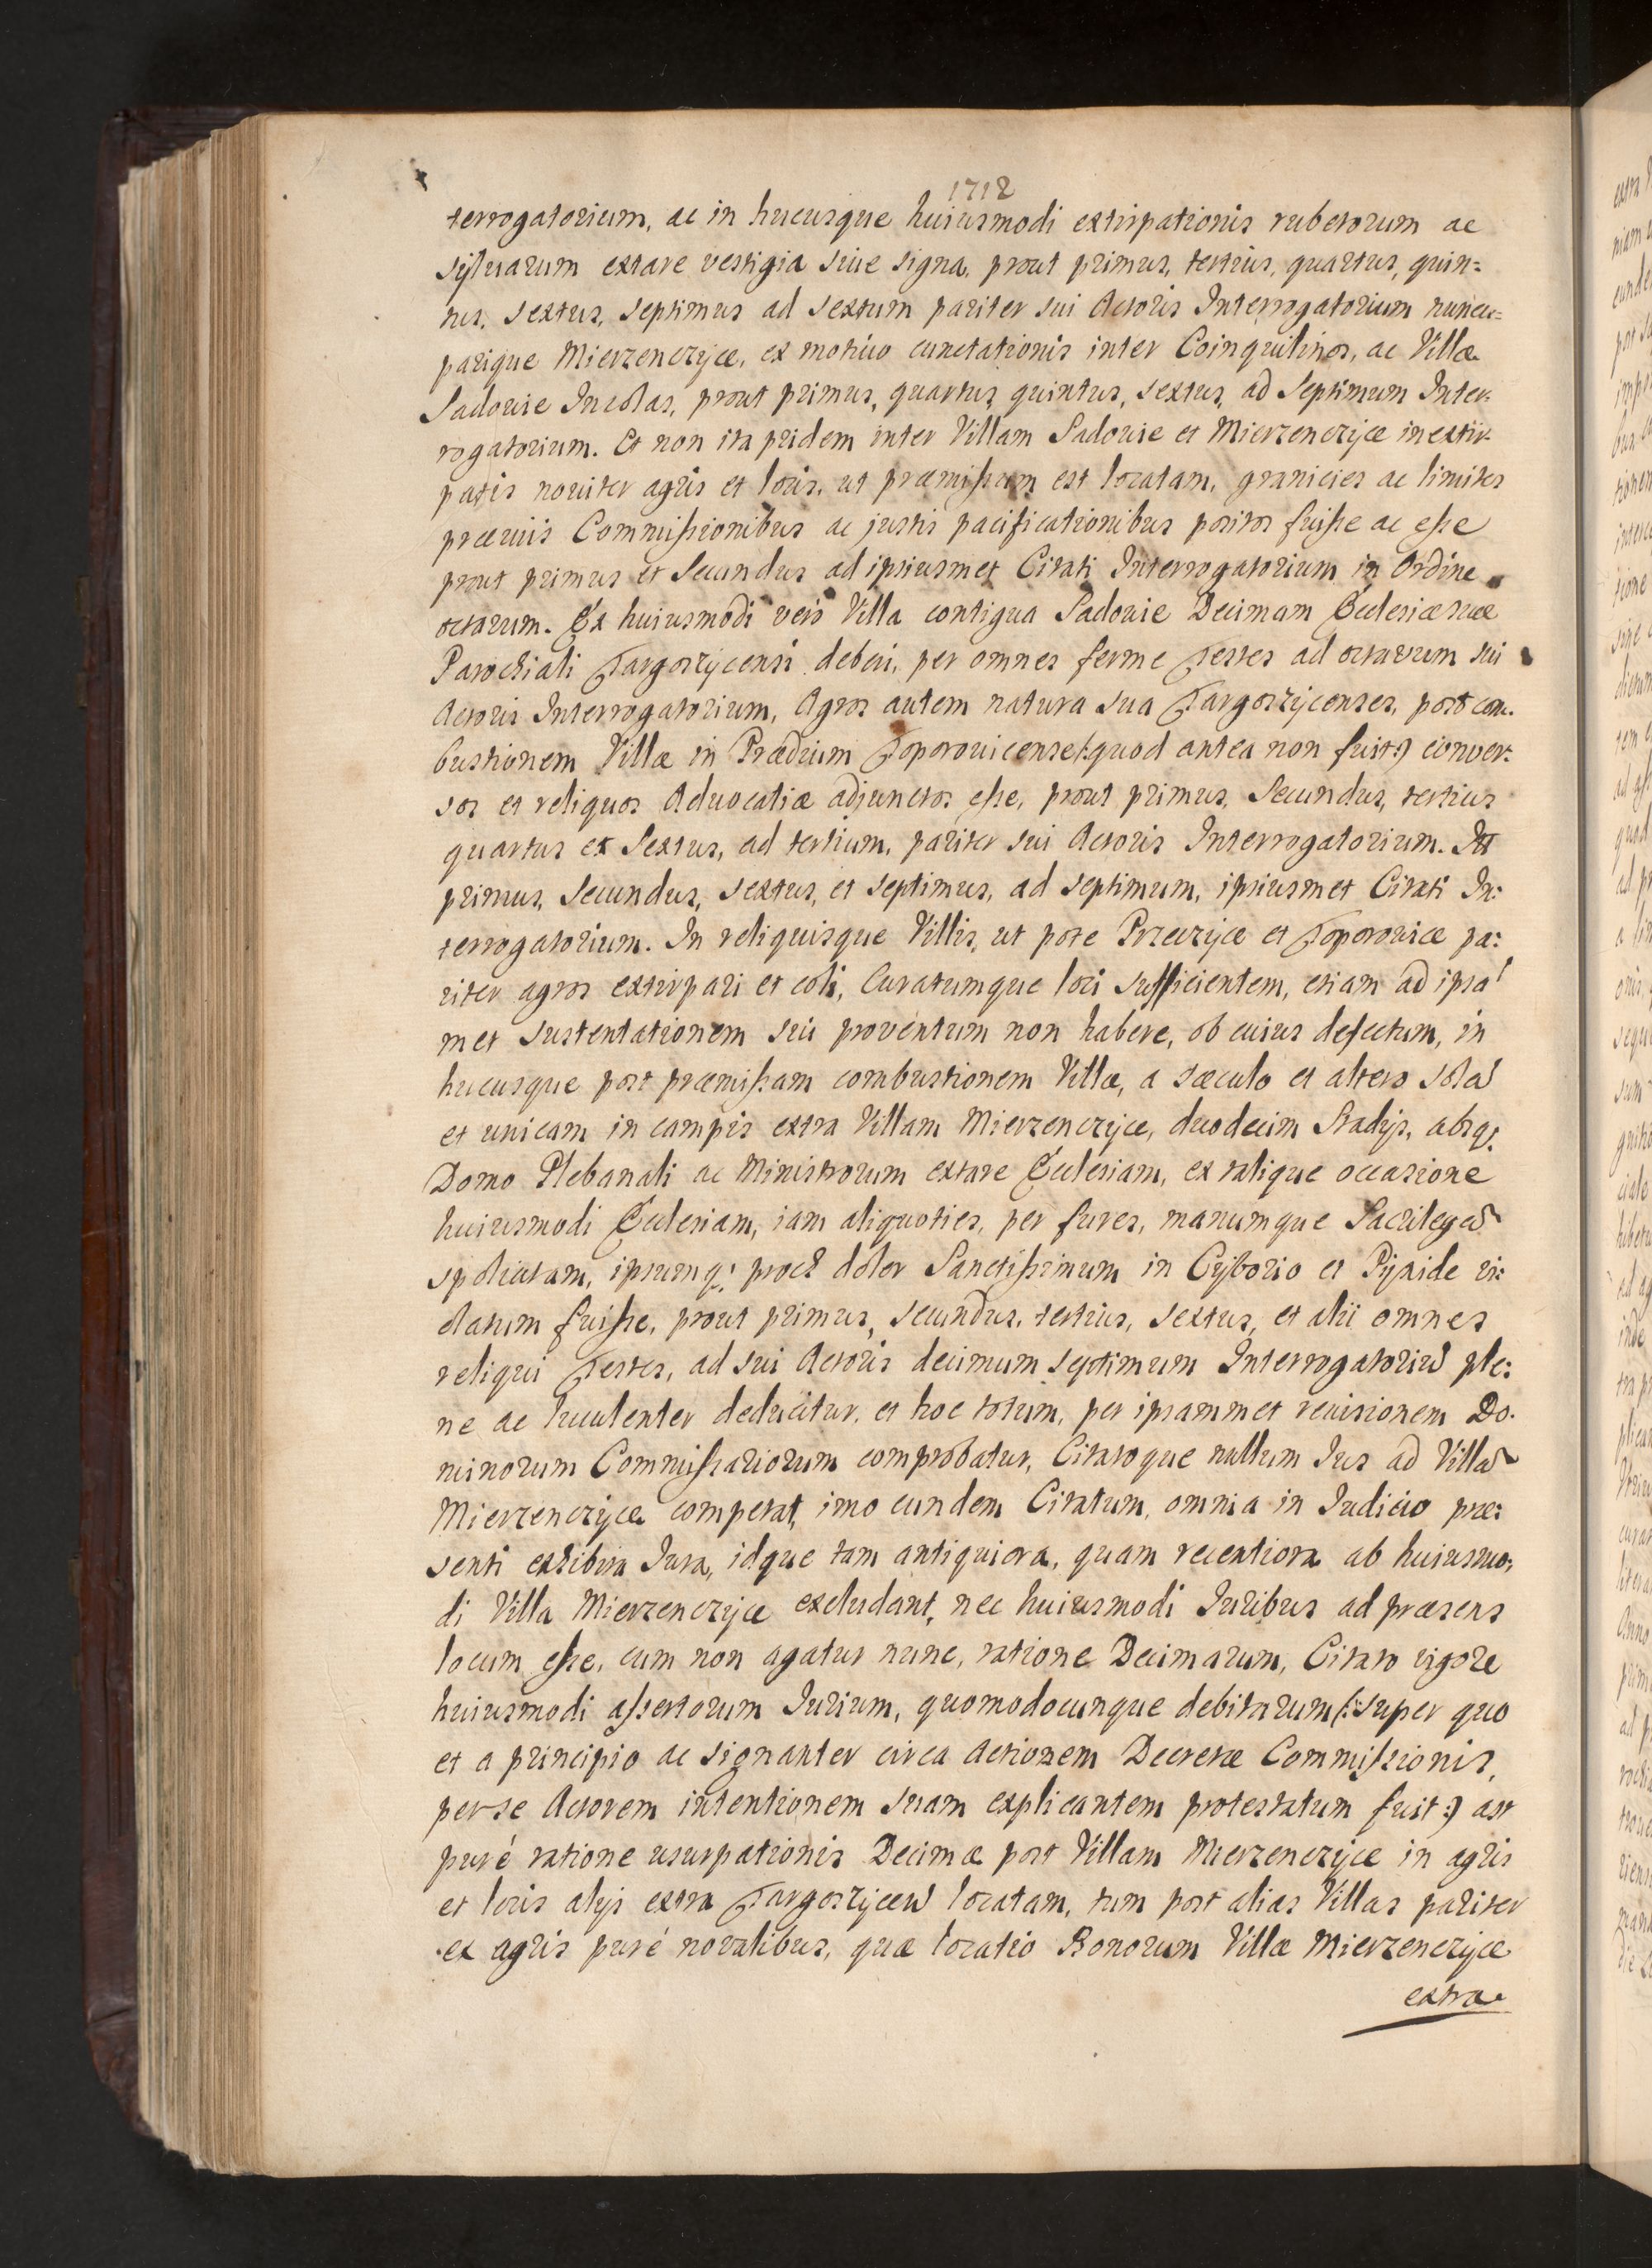 1712
terrogatorium, ac in hucusque huiusmodi extirpationis rubetorum ac
sylvarum extare vestigia siue signa, prout primus, tertius, quartus, quin=
tus, sextus, septimus ad sextum pariter sui Actoris Interrogatorium nuncu=
parique Mierzenczyce, ex motiuo cunctationis inter Coinquilinos, ac Villæ
Sadowie Incolas, prout primus, quartus, quintus, sextus, ad septimum Inter-
rogatorium. Et non ita pridem inter Villam Sadowie et Mierzenczyce in extir-
patis noviter agris et locis, ut præmissum est locatam, granicies ac limites
præviis Commissionibus ac justis pacificationibus positos fuisse ac esse
prout primus et Secundus ad ipsiusmet Citati Interrogatorium in Ordine
octavum. Ex huiusmodi vero Villa contigua Sadowie Decimam Ecclesiæ suæ
Parochiali Targoszycensi deberi, per omnes ferme Testes ad octavum sui
Actoris Interrogatorium, Agros autem natura sua Targoszycenses, post com-
bustionem Villæ in Prædium Toporovicense (:quod antea non fuit:) conver-
sos et reliquos Advocatiæ adjunctos esse, prout primus, Secundus, tertius
quartus et Sextus, ad tertium, pariter sui Actoris Interrogatorium. Itt
primus, Secundus, sextus, et septimus, ad septimum, ipsiusmet Citati In:
terrogatorium. In reliquisque Villis, ut pote Przeczyce et Toporowice pa:
riter agros extirpari et coli, Curatumque loci sufficientem, etiam ad ipsa
met sustentationem sui proventum non habere, ob cuius defectum, in
hucusque post præmissam combustionem Villæ, a sæculo et altero sola
et unicam in campis extra Villam Mierzenczyce, duodecim Stadijs, absq;
Domo Plebanali ac Ministrorum extare Ecclesiam, ex talique occasione
huiusmodi Ecclesiam, iam aliquoties, per fures, manumque Sacrilega
spoliatam, ipsumq; proch dolor Sanctissimum in Cyborio et Pyxide vi:
olatum fuisse, prout primus, secundus, tertius, sextus, et alii omnes
reliqui Testes, ad sui Actoris decimum septimum Interrogatoriu ple:
ne ac luculenter deducitur, et hoc totum, per ipsammet revisionem Do-
minorum Commissariorum comprobatur, Citatoque nullum Jus ad Villa
Mierzenczyce competat, imo eundem Citatum, omnia in Judicio præ:
senti exhibita Jura, idque tam antiquiora, quam recentiora ab huiusmo:
di Villa Mierzenczyce excludant, nec huiusmodi Juribus ad præsens
locum esse, cum non agatur nunc, ratione Decimarum, Citato vigore
huiusmodi assertorum Jurium, quomodocunque debitarum (:super quo
et a principio ac signanter circa Actionem Decretæ Commissionis,
per se Actorem intentionem suam explicantem protestatum fuit:) ast
puré ratione usurpationis Decimæ post Villam Mierzenczyce in agris
et locis alijs extra Targoszyce locatam, tum post alias Villas pariter
ex agris puré novalibus, quæ locatio Bonorum Villæ Mierzenczyce
extra